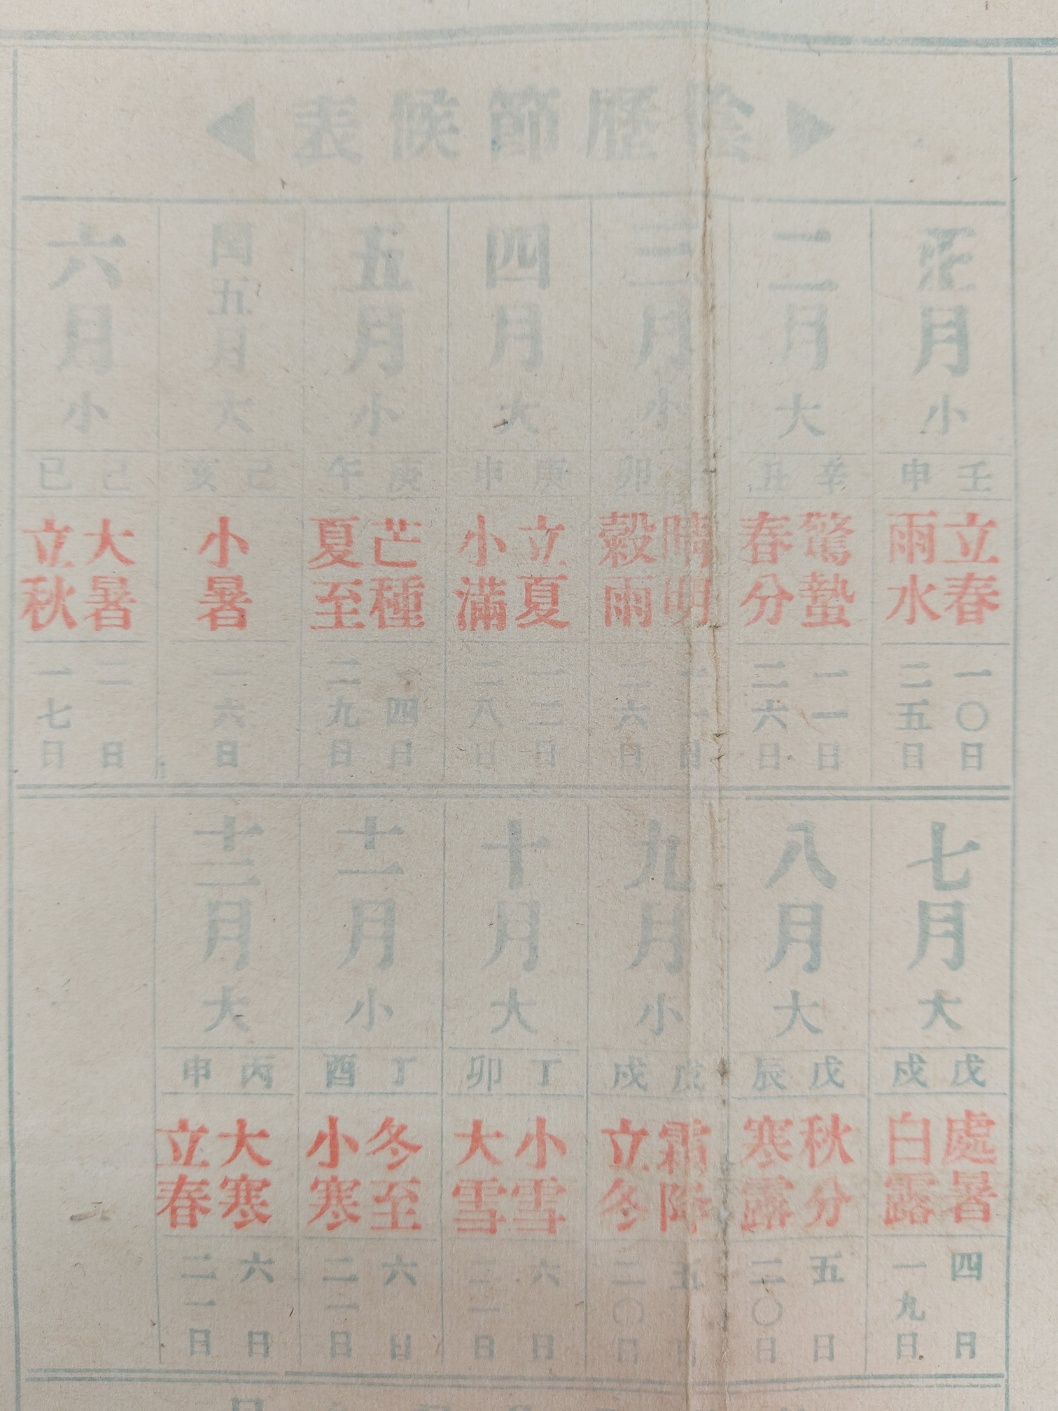 陰歷節候表
正月小 壬申 立春 一〇日 雨水 二五日
二月大 辛丑 驚蟄 一一日 春分 二六日
三月小 卯 晴明 穀雨 二六日
四月大 庚申 立夏 一二日 小滿 二八日
五月小 庚午 芒種 四日 夏至 二九日
閏五月大 己亥 小暑 一六日
六月小 己巳 大暑 二日 立秋 一七日
七月大 戊戌 處暑 四日 白露 一九日
八月大 戊辰 秋分 五日 寒露 二〇日
九月小 戊戌 霜降 五日 立冬 二〇日
十月大 丁卯 小雪 六日 大雪 二一日
十一月小 丁酉 冬至 六日 小寒 二一日
十二月大 丙申 大寒 六日 立春 二一日